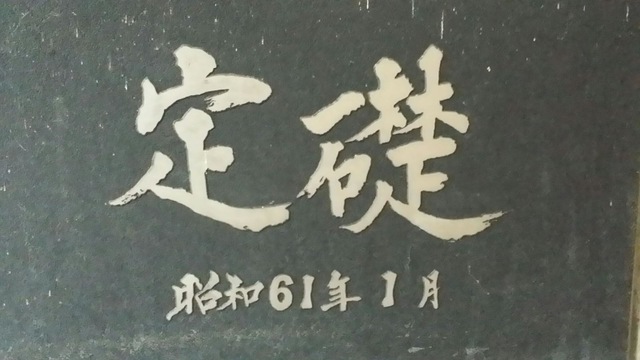 定礎
昭和61年1月